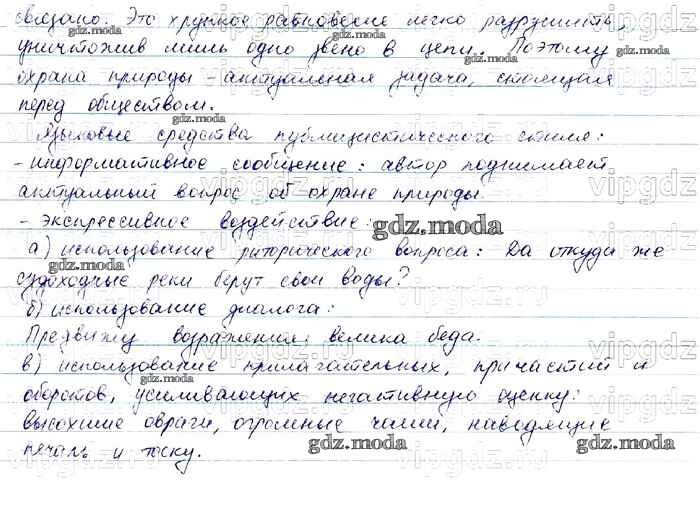 связано. Это хрупкое равновесие легко разрушить,
уничтожив лишь одно звено в цепи. Поэтому
охрана природы – актуальная задача, стоящая
перед обществом.
Языковые средства публицистического стиля:
- информативное сообщение: автор поднимает
актуальный вопрос об охране природы.
- экспрессивное воздействие:
а) использование риторического вопроса: Да откуда же
судоходные реки берут свои воды?
б) использование диалога:
Предвижу возражения: велика беда.
в) использование прилагательных, причастий и
оборотов, усиливающих негативную оценку:
высохшие овраги, огромные чаши, наводящие
печаль и тоску.